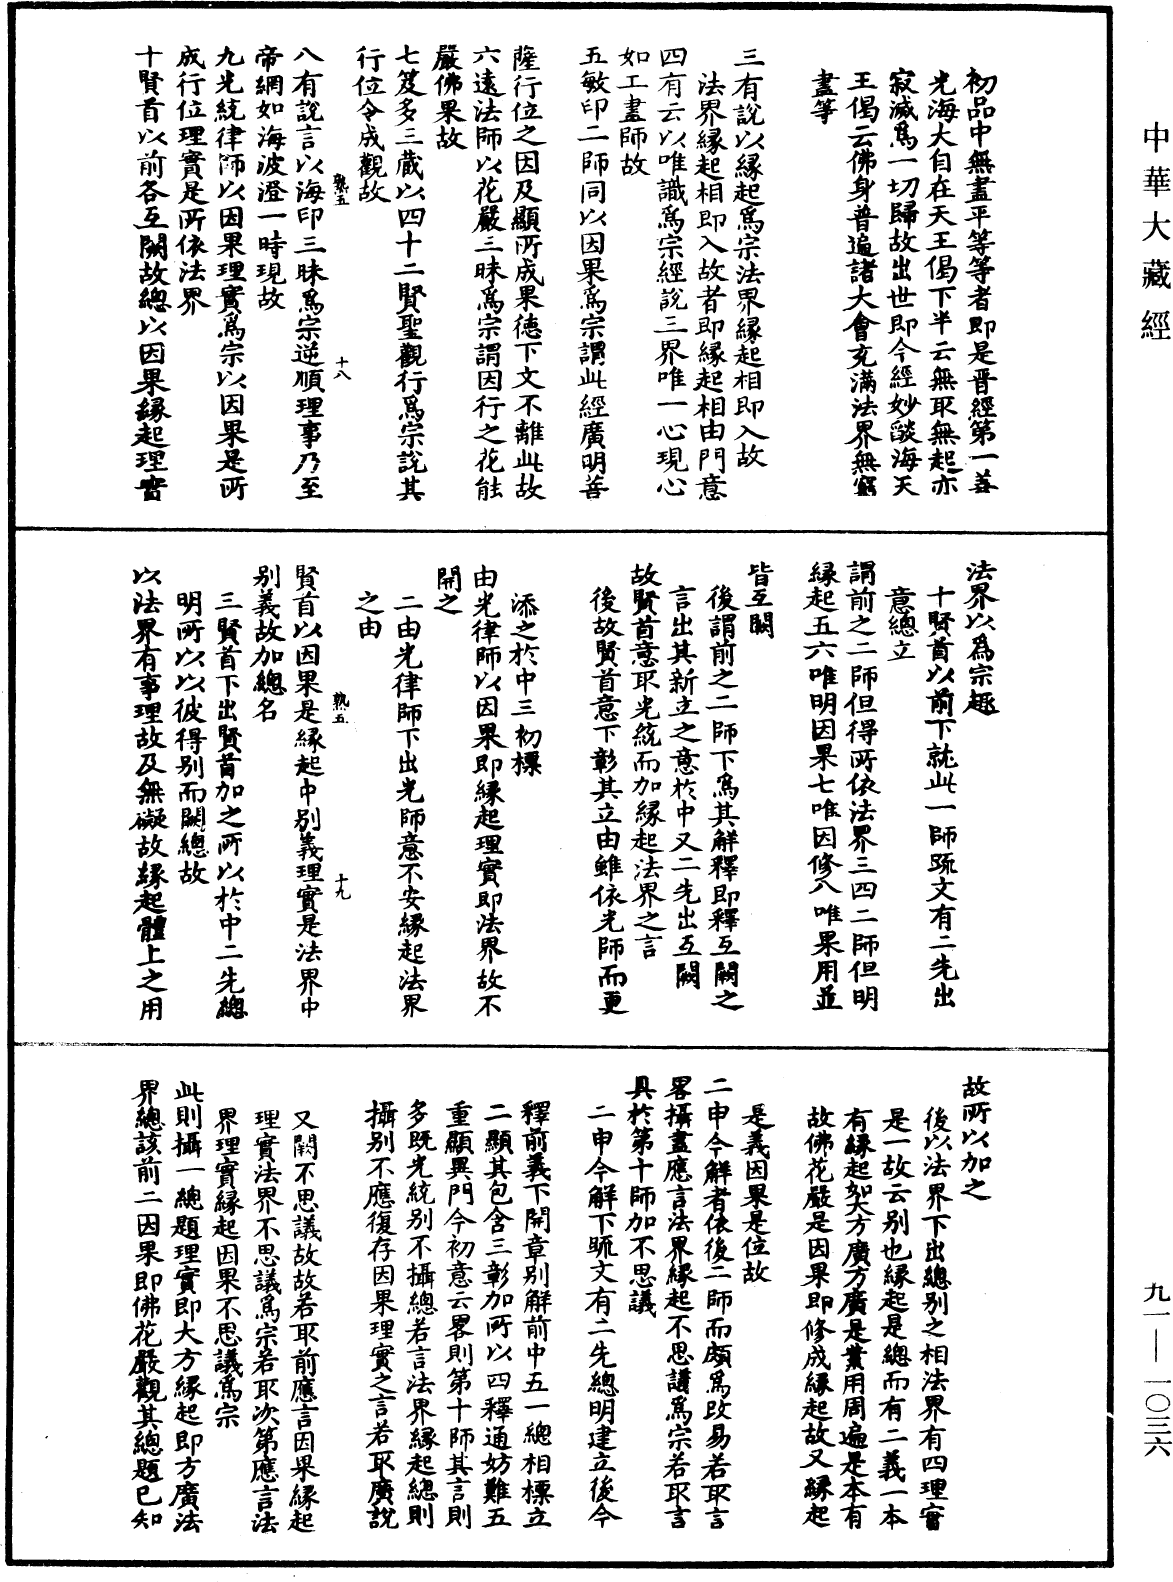 中華大藏經
初品中無盡平等等者即是晋經第一善
光海大自在天王偈下半云無取無起亦
寂滅爲一切歸故出世即今經妙燄海天
王偈云佛身普遍諸大會充滿法界無窮
盡等
三有說以緣起爲宗法界緣起相即入故
法界緣起相即入故者即緣起相由門意
四有云以唯識爲宗經說三界唯一心現心
如工畫師故
五敏印二師同以因果爲宗謂此經廣明菩
薩行位之因及顯所成果德下文不離此故
六遠法師以花嚴三昧爲宗謂因行之花能
嚴佛果故
七笈多三藏以四十二賢聖觀行爲宗說其
行位令成觀故
孰五
十八
八有說言以海印三昧爲宗逆順理事乃至
帝網如海波澄一時現故
九光統律師以因果理實爲宗以因果是所
成行位理實是所依法界
十賢首以前各互闕故總以因果緣起理實
法界以爲宗趣
十賢首以前下就此一師疏文有二先出
意總立
謂前之二師但得所依法界三四二師但明
緣起五六唯明因果七唯因修八唯果用並
皆互闕
後謂前之二師下爲其解釋即釋互闕之
言出其新立之意於中又二先出互闕
故賢首意取光統而加緣起法界之言
後故賢首意下彰其立由雖依光師而更
添之於中三初標
由光律師以因果即緣起理實即法界故不
開之
二由光律師下出光師意不安緣起法界
之由
孰五
十九
賢首以因果是緣起中別義理實是法界中
別義故加總名
三賢首下出賢首加之所以於中二先總
明所以以彼得別而闕總故
以法界有事理故及無礙故緣起體上之用
故所以加之
後以法界下出總別之相法界有四理實
是一故云別也緣起是總而有二義一本
有緣起如大方廣方廣是業用周遍是本有
故佛花嚴是因果即修成緣起故又緣起
是義因果是位故
二申今解者依後二師而頗爲改易若取言
畧攝盡應言法界緣起不思議爲宗若取言
具於第十師加不思議
二申今解下疏文有二先總明建立後今
釋前義下開章別解前中五一總相標立
二顯其包含三彰加所以四釋通妨難五
重顯異門今初意云畧則第十師其言則
多既光統別不攝總若言法界緣起總則
攝別不應復存因果理實之言若取廣說
又闕不思議故故若取前應言因果緣起
理實法界不思議爲宗若取次第應言法
界理實緣起因果不思議爲宗
此則攝一總題理實即大方緣起即方廣法
界總該前二因果即佛花嚴觀其總題已知
九一—一〇三六